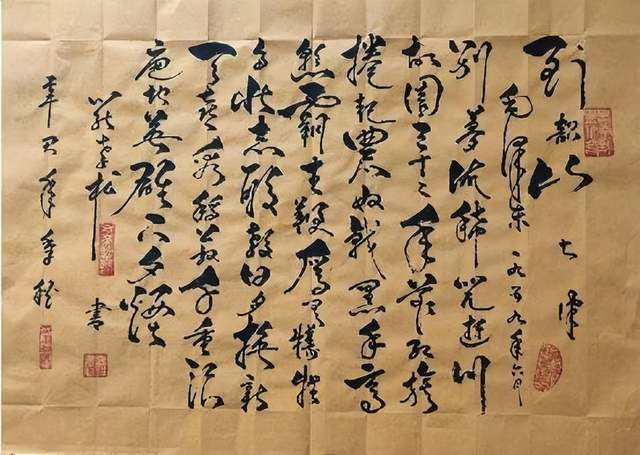 到韶山 七律
毛泽东 一九五九年六月
别梦依稀咒逝川
故園三十二年前红旗
捲起農奴戟黑手高
懸霸主鞭为有犧牲
多壮志敢教日月换新
天喜看稻菽千重浪
遍地英雄下夕烟
松 書
辛丑年季秋